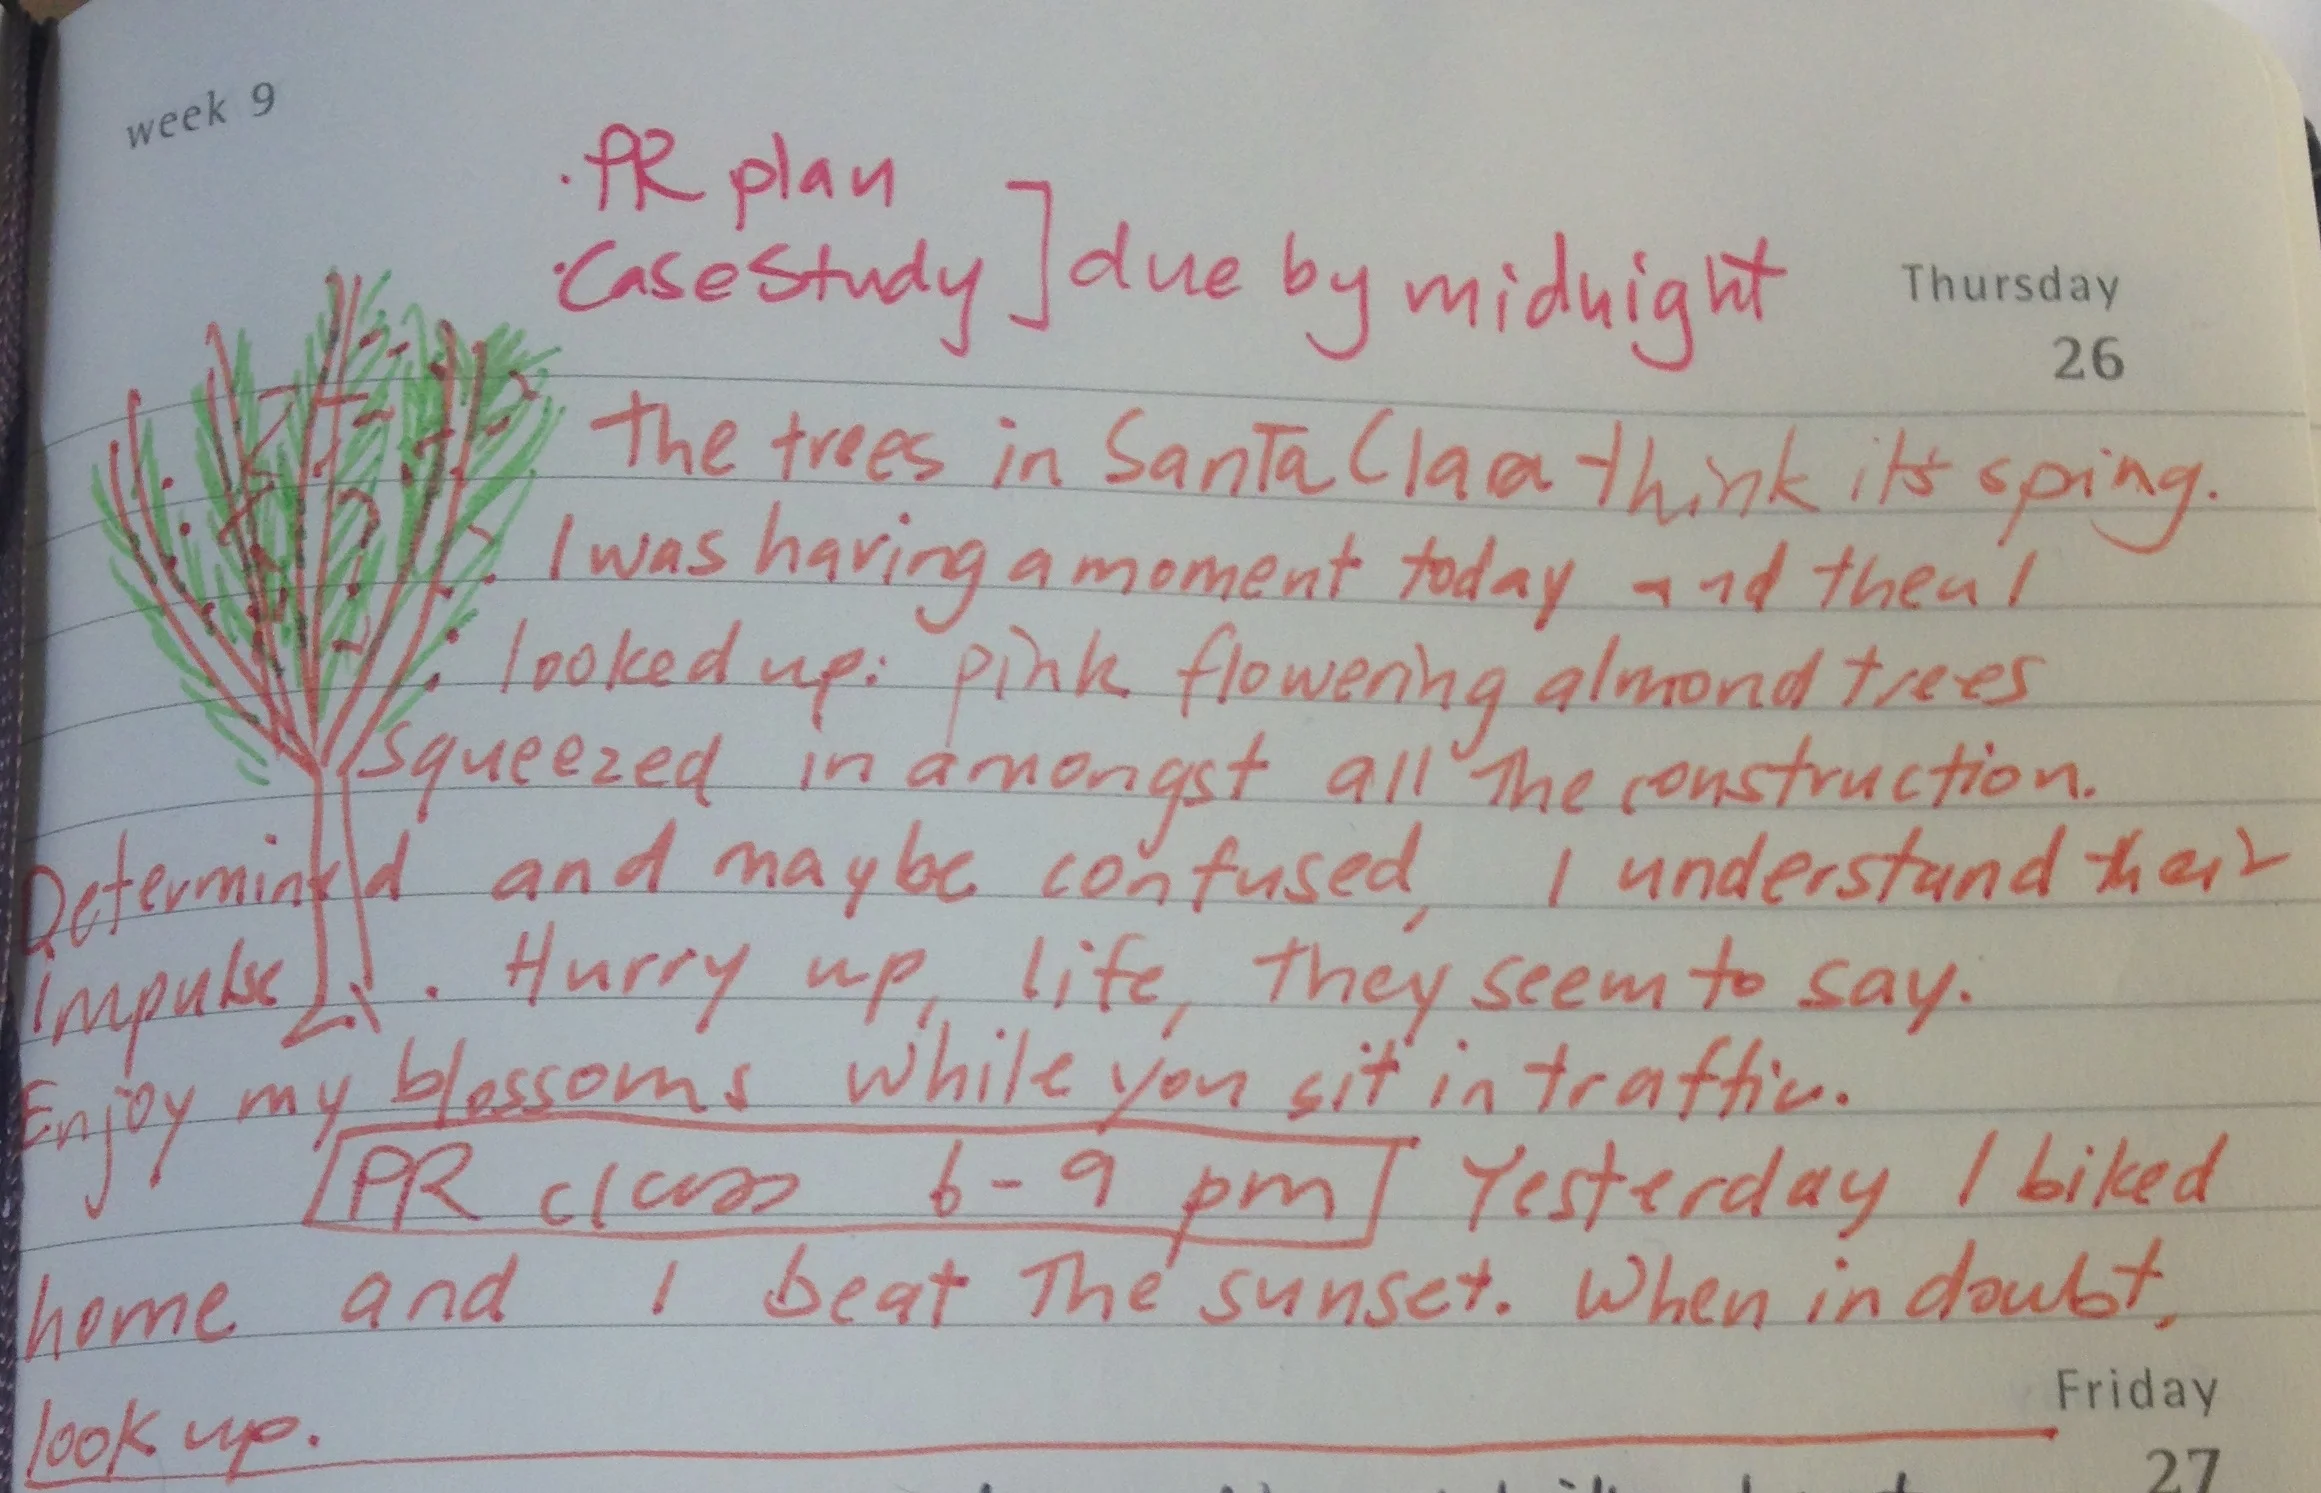 week 9
· PR plan
· Case Study ] due by midnight
Thursday
26
The trees in Santa Clara think it's sping.
I was having a moment today and then I
looked up: pink flowering almond trees
squeezed in amongst all the construction.
Determined and maybe confused, I understand their
impulse. Hurry up, life, they seem to say.
Enjoy my blossoms while you sit in traffic.
PR class 6-9 pm Yesterday I biked
home and I beat the sunset. When in doubt,
look up.
Friday
27